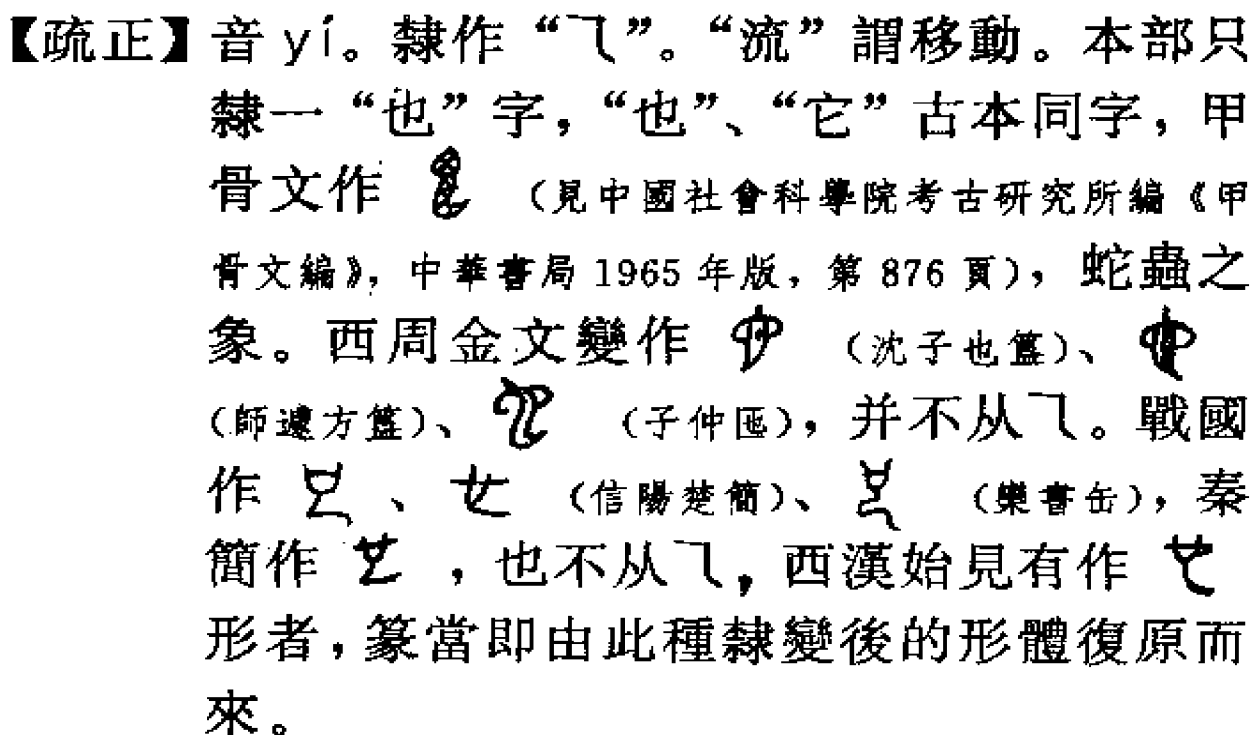 【疏正】音 yí。隸作“乁”。“流”謂移動。本部只
隸一“也”字，“也”、“它”古本同字，甲
骨文作（見中國社會科學院考古研究所編《甲
骨文編》，中華書局 1965 年版，第 876 頁），蛇蟲之
象。西周金文變作（沈子也簋）、
（師遽方簋）、（子仲匜），并不从乁。戰國
作、（信陽楚簡）、（欒書缶），秦
簡作，也不从乁，西漢始見有作
形者，篆當即由此種隸變後的形體復原而
來。